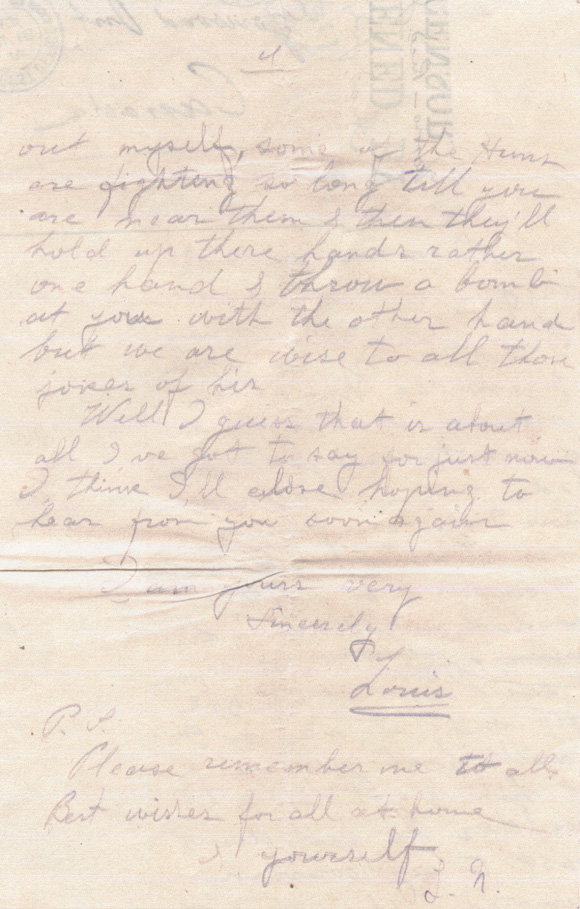 4
out myself, some of the Huns
are fighting so long till you
are near them & then they'll
hold up there hands rather
one hand & throw a bomb
at you with the other hand
but we are wise to all those
jokes of his
Well I guess that is about
all I've got to say for just now
I think I'll close hoping to
hear from you soon again
I am yours very
Sincerely
Louis
P.S.
Please remember me to all
Best wishes for all at home
& yourself
L. N.